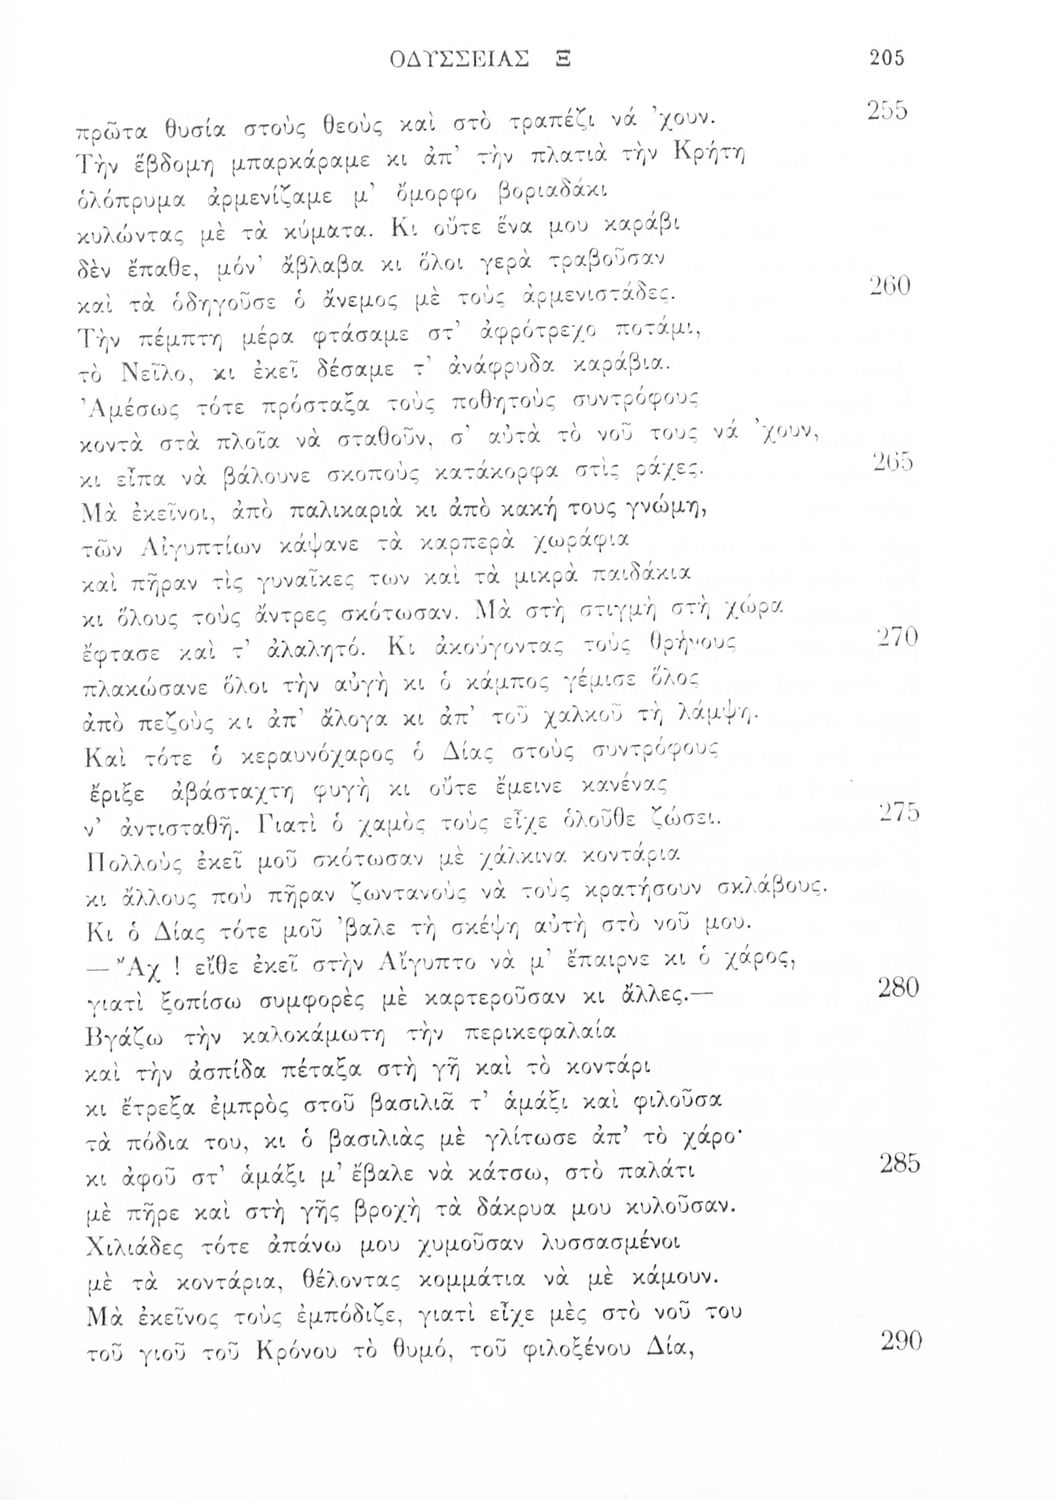 ΟΔΥΣΣΕΙΑΣ Ξ 205
πρῶτα θυσία στοὺς θεοὺς καὶ στὸ τραπέζι νά 'χουν. 255
Τὴν ἕβδομη μπαρκάραμε κι ἀπ' τὴν πλατιὰ τὴν Κρήτη
ὁλόπρυμα ἀρμενίζαμε μ' ὄμορφο βοριαδάκι
κυλώντας μὲ τὰ κύματα. Κι οὔτε ἕνα μου καράβι
δὲν ἔπαθε, μόν' ἄβλαβα κι ὅλοι γερὰ τραβοῦσαν
καὶ τὰ ὁδηγοῦσε ὁ ἄνεμος μὲ τοὺς ἀρμενιστάδες. 260
Τὴν πέμπτη μέρα φτάσαμε στ' ἀφρότρεχο ποτάμι,
τὸ Νεῖλο, κι ἐκεῖ δέσαμε τ' ἀνάφρυδα καράβια.
Ἀμέσως τότε πρόσταξα τοὺς ποθητοὺς συντρόφους
κοντὰ στὰ πλοῖα νὰ σταθοῦν, σ' αὐτὰ τὸ νοῦ τους νά 'χουν,
κι εἶπα νὰ βάλουνε σκοποὺς κατάκορφα στὶς ράχες. 265
Μὰ ἐκεῖνοι, ἀπὸ παλικαριὰ κι ἀπὸ κακή τους γνώμη,
τῶν Αἰγυπτίων κάψανε τὰ καρπερὰ χωράφια
καὶ πῆραν τὶς γυναῖκες των καὶ τὰ μικρὰ παιδάκια
κι ὅλους τοὺς ἄντρες σκότωσαν. Μὰ στὴ στιγμὴ στὴ χώρα
ἔφτασε καὶ τ' ἀλαλητό. Κι ἀκούγοντας τοὺς θρήνους 270
πλακώσανε ὅλοι τὴν αὐγὴ κι ὁ κάμπος γέμισε ὅλος
ἀπὸ πεζοὺς κι ἀπ' ἄλογα κι ἀπ' τοῦ χαλκοῦ τὴ λάμψη.
Καὶ τότε ὁ κεραυνόχαρος ὁ Δίας στοὺς συντρόφους
ἔριξε ἀβάσταχτη φυγὴ κι οὔτε ἔμεινε κανένας
ν' ἀντισταθῆ. Γιατὶ ὁ χαμὸς τοὺς εἶχε ὁλοῦθε ζώσει. 275
Πολλοὺς ἐκεῖ μοῦ σκότωσαν μὲ χάλκινα κοντάρια
κι ἄλλους ποὺ πῆραν ζωντανοὺς νὰ τοὺς κρατήσουν σκλάβους.
Κι ὁ Δίας τότε μοῦ 'βαλε τὴ σκέψη αὐτὴ στὸ νοῦ μου.
— Ἄχ ! εἴθε ἐκεῖ στὴν Αἴγυπτο νὰ μ' ἔπαιρνε κι ὁ χάρος,
γιατὶ ξοπίσω συμφορὲς μὲ καρτεροῦσαν κι ἄλλες.— 280
Βγάζω τὴν καλοκάμωτη τὴν περικεφαλαία
καὶ τὴν ἀσπίδα πέταξα στὴ γῆ καὶ τὸ κοντάρι
κι ἔτρεξα ἐμπρὸς στοῦ βασιλιᾶ τ' ἁμάξι καὶ φιλοῦσα
τὰ πόδια του, κι ὁ βασιλιὰς μὲ γλίτωσε ἀπ' τὸ χάρο·
κι ἀφοῦ στ' ἁμάξι μ' ἔβαλε νὰ κάτσω, στὸ παλάτι 285
μὲ πῆρε καὶ στὴ γῆς βροχὴ τὰ δάκρυα μου κυλοῦσαν.
Χιλιάδες τότε ἀπάνω μου χυμοῦσαν λυσσασμένοι
μὲ τὰ κοντάρια, θέλοντας κομμάτια νὰ μὲ κάμουν.
Μὰ ἐκεῖνος τοὺς ἐμπόδιζε, γιατὶ εἶχε μὲς στὸ νοῦ του
τοῦ γιοῦ τοῦ Κρόνου τὸ θυμό, τοῦ φιλοξένου Δία, 290